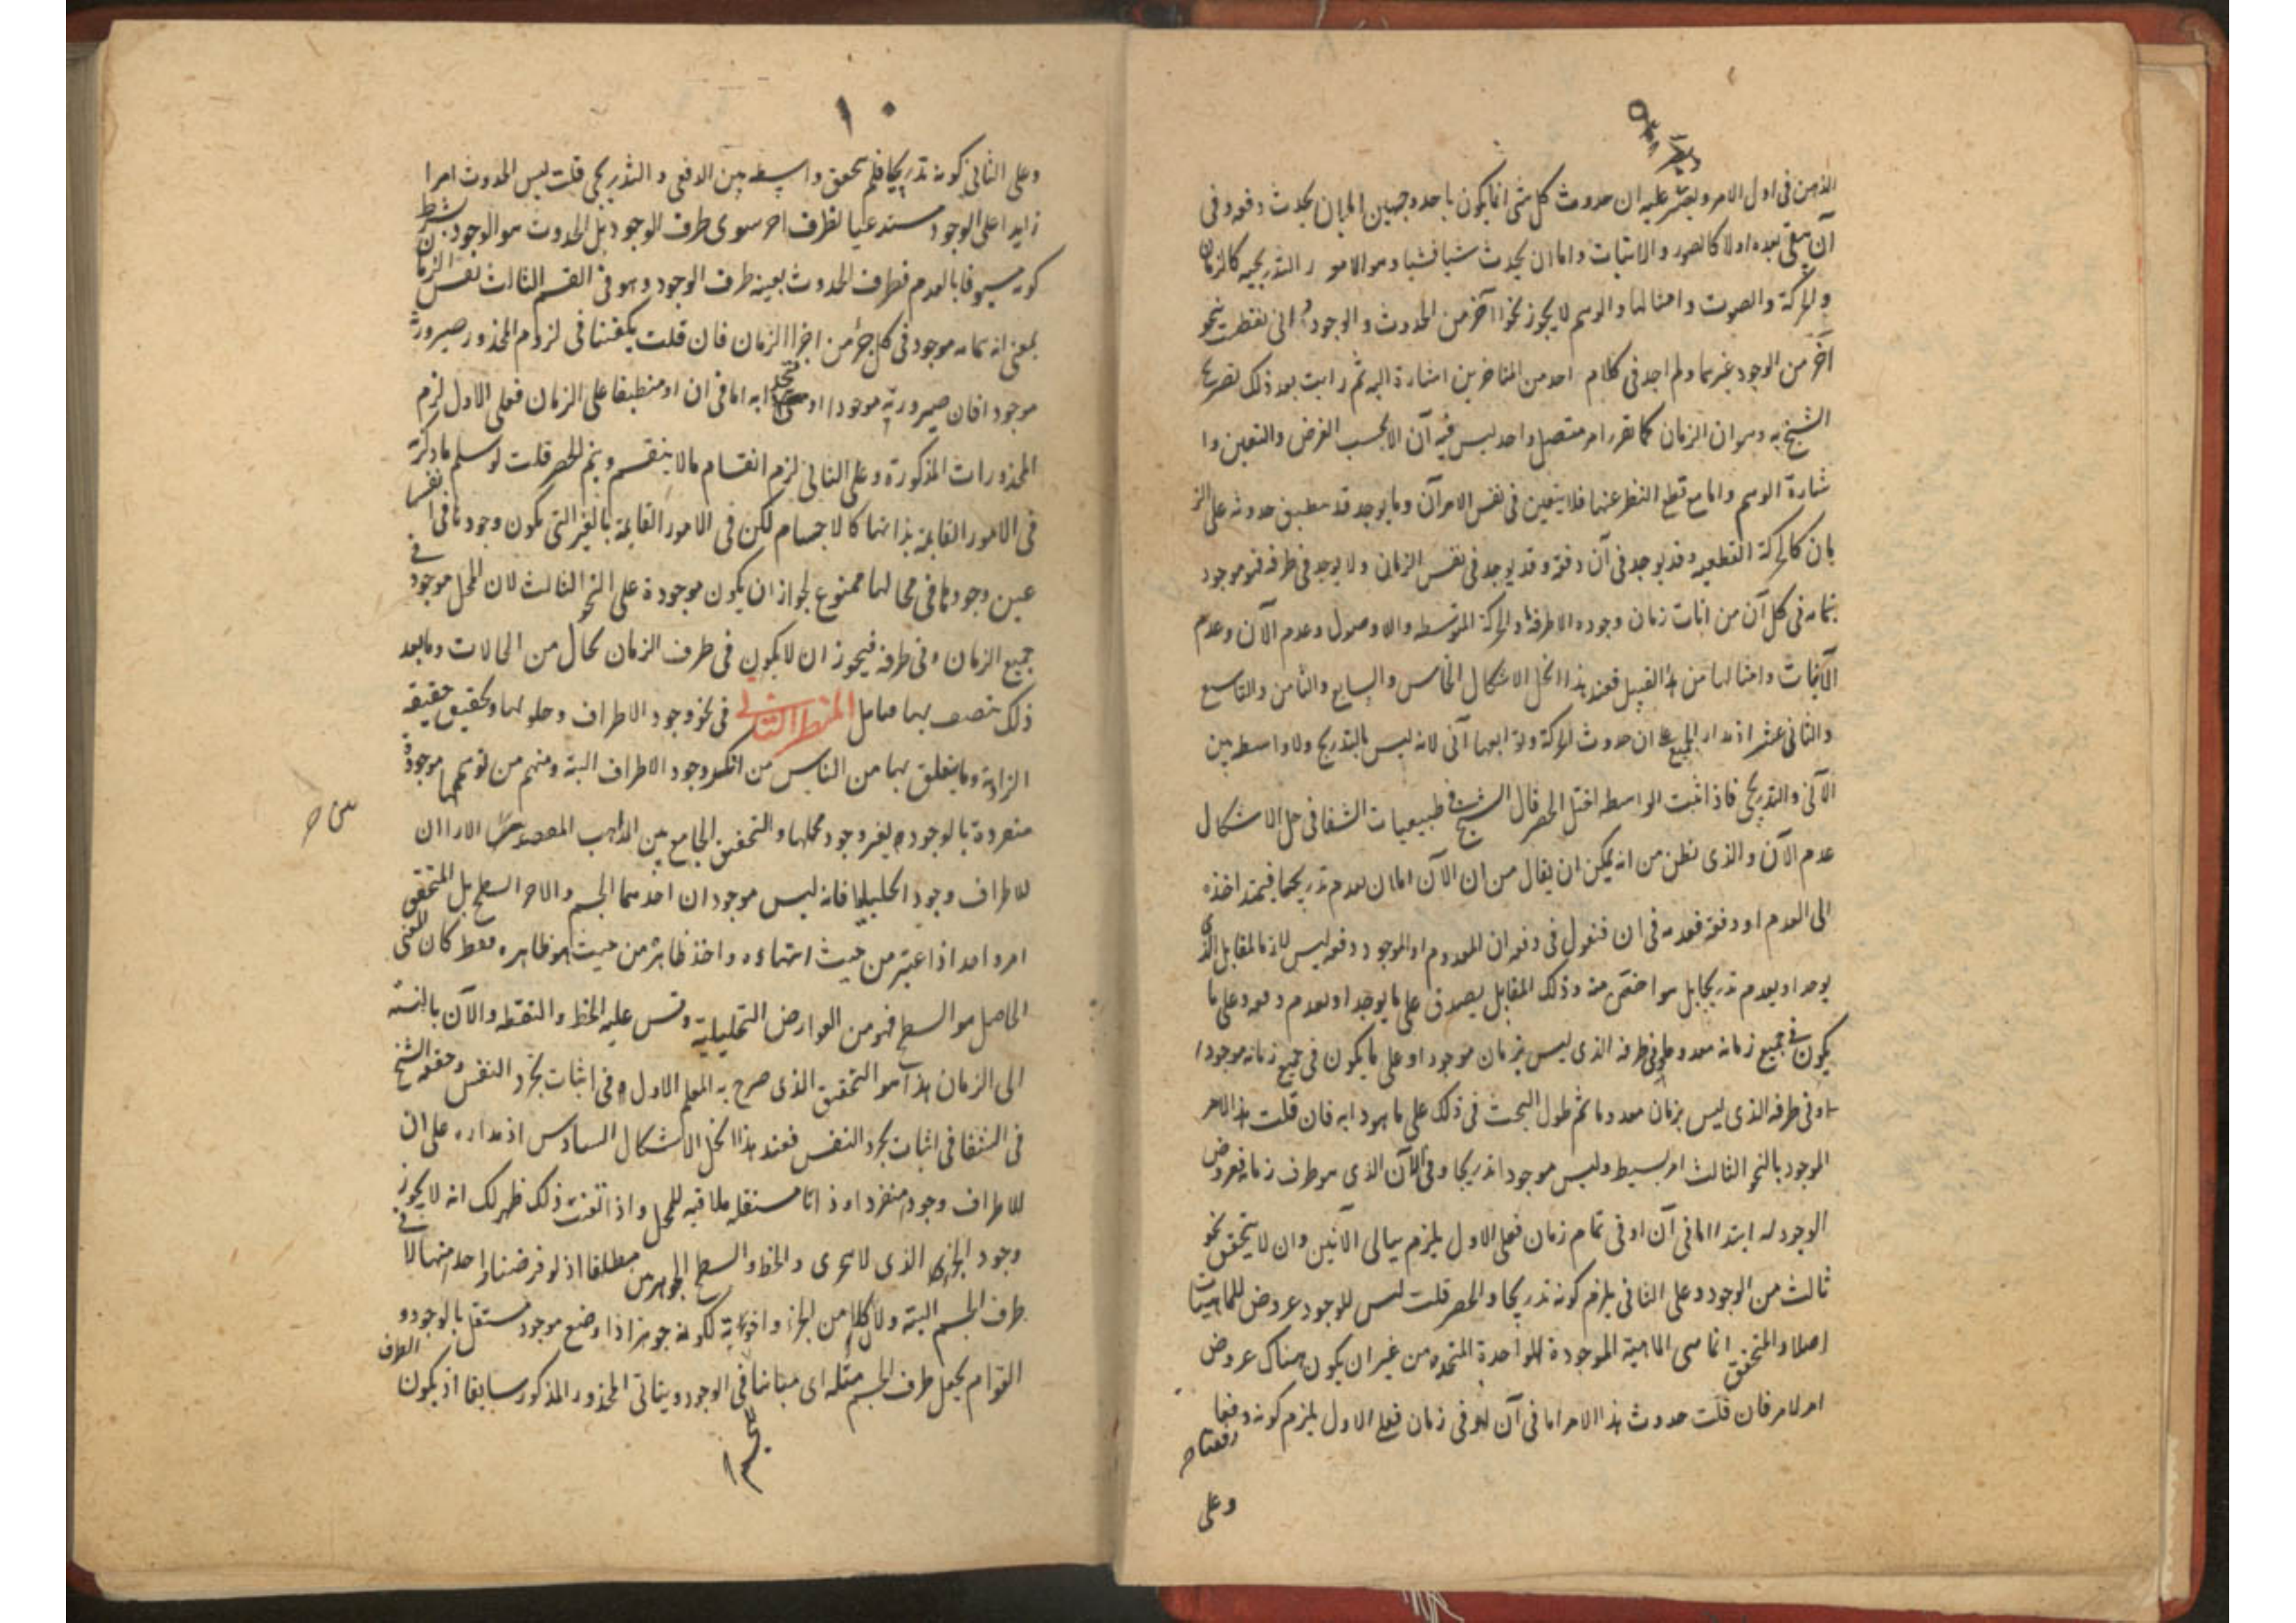 الذهن فى اول الامر ويعسر عليه ان حدوث كل شى انما يكون باحد وجهين اما ان يحدث دفعه وفى
آن يبقى بعده اولا كالصور والاثبات واما ان يحدث شيا فشيا وهو الامور التدريجيه كالزمان
والحركة والصوت وامثالها والوهم لا يجوز نحوا آخر من الحدوث والوجود انى تفطنت بنحو
آخر من الوجود غيرهما ولم اجد فى كلام احد من المتاخرين اشارة اليه ثم رايت بعد ذلك تصريح
الشيخ به وهو ان الزمان كما تقرر امر متصل واحد ليس فيه آن الا بحسب الفرض والتعين وا
شارة الوهم واما مع قطع النظر عنها فلا يتعين فى نفس الامر آن وما يوجد قد ينطبق حدوثه على الز
مان كالحركة القطعيه وقد يوجد فى آن دفعة وقد يوجد فى نفس الزمان ولا يوجد فى طرفه فهو موجود
بتمامه فى كل آن من انات زمان وجوده الا طرفه والحركة المتوسطه واللاوصول وعدم الآن وعدم
الآنيات وامثالها من هذا القبيل فعند هذا انحل الاشكال الخامس والسابع والثامن والتاسع
والثانى عشر اذ مدار الجميع على ان حدوث الحركة وتوابعها آنى لانه ليس بالتدريج ولا واسطه بين
الآنى والتدريجى فاذا ثبت الواسطه اختل الحصر قال الشيخ فى طبيعيات الشفا فى حل الاشكال
عدم الآن والذى نظن من انه يمكن ان يقال من ان الآن اما ان يعدم تدريجا فيمتد اخذه
الى العدم او دفعة فعدمه فى ان فنقول فى دفعه ان المعدوم او الموجود دفعه ليس لازما لمقابل الذى
يوجد او يعدم تدريجا بل هو اخص منه وذلك المقابل يصدق على ما يوجد او يعدم دفعه وعلى ما
يكون فى جميع زمانه معدوما وفى طرفه الذى ليس بزمان موجودا او على ما يكون فى جميع زمانه موجودا
وفى طرفه الذى ليس بزمان معدوما ثم طول البحث فى ذلك على ما هو دابه فان قلت هذا الامر
الموجود بالنحو الثالث امر بسيط وليس موجودا تدريجا وفى الآن الذى هو طرف زمانه فعروض
الوجود له ابتدا اما فى آن او فى تمام زمان فعلى الاول يلزم تتالى الآنين وان لا يتحقق نحو
ثالث من الوجود وعلى الثانى يلزم كونه تدريجا والحصر قلت ليس للوجود عروض للماهيات
اصلا والمتحقق انما هى الماهية الموجودة الواحدة المتحده من غير ان يكون هناك عروض
امر لامر فان قلت حدوث هذا الامر اما فى آن او فى زمان فعلى الاول يلزم كونه دفعيا
دفعتا
وعلى
١٠
وعلى الثانى كونه تدريجا فلم يتحقق واسطه بين الدفعى والتدريجى قلت ليس الحدوث امرا
زايدا على الوجود مستدعيا لظرف اخر سوى ظرف الوجود بل الحدوث هو الوجود بشرط
كونه مسبوقا بالعدم فظرف الحدوث بعينه ظرف الوجود وهو فى القسم الثالث نفس الزمان
بمعنى انه بتمامه موجود فى كل جزء من اجزا الزمان فان قلت يكفينا فى لزوم المحذور صيرورته
موجودا فان صيرورته موجودا او متحدا به اما فى ان او منطبقا على الزمان فعلى الاول لزم
المحذورات المذكورة وعلى الثانى لزم انقسام ما لا ينقسم ويتم الحصر قلت لو سلم ما ذكرته
فى الامور القايمة بذاتها كالاجسام لكن فى الامور القايمة بالغير التى يكون وجودها فى انفسها
عين وجودها فى محالها ممنوع لجواز ان يكون موجودة على النحو الثالث لان المحل موجود فى
جميع الزمان وفى طرفه فيجوز ان لا يكون فى طرف الزمان بحال من الحالات وما بعد
ذلك يتصف بها فتامل المنظر الثانى فى نحو وجود الاطراف وحلولها وتحقيق حقيقة
الزاوية وما يتعلق بها من الناس من انكر وجود الاطراف البتة ومنهم من توهمها موجودة
منفردة بالوجود بغير وجود محلها والتحقيق الجامع بين المذاهب الارا ان
للاطراف وجودا تحليليا فانه ليس موجودان احدهما الجسم والاخر السطح بل المتحقق
امر واحد اذا اعتبر من حيث انتهاءه واخذ ظاهره من حيث هو ظاهره فقط كان المعنى
الحاصل هو السطح فهو من العوارض التحليلية وقس عليه الخط والنقطه والآن بالنسبة
الى الزمان هذا هو التحقيق الذى صرح به المعلم الاول فى اثبات تجرد النفس وحققه الشيخ
فى الشفا فى اثبات تجرد النفس فعند هذا انحل الاشكال السادس اذ مداره على ان
للاطراف وجودا منفردا وذاتا مستقله ملاقيه للمحل واذا تقنت ذلك ظهر لك انه لا يجوز
وجود الجزء الذى لا يتجزى والخط والسطح الجوهرين مطلقا اذ لو فرضنا واحد منها لا فى
طرف الجسم البتة ولان كلا من الجزء واخواته لكونه جوهرا ذا وضع موجود مستقل بالوجود و
القوام يجعل طرف الجسم مثله اى مباينا فى الوجود ويتاتى المحذور المذكور سابقا اذ يكون الطرف